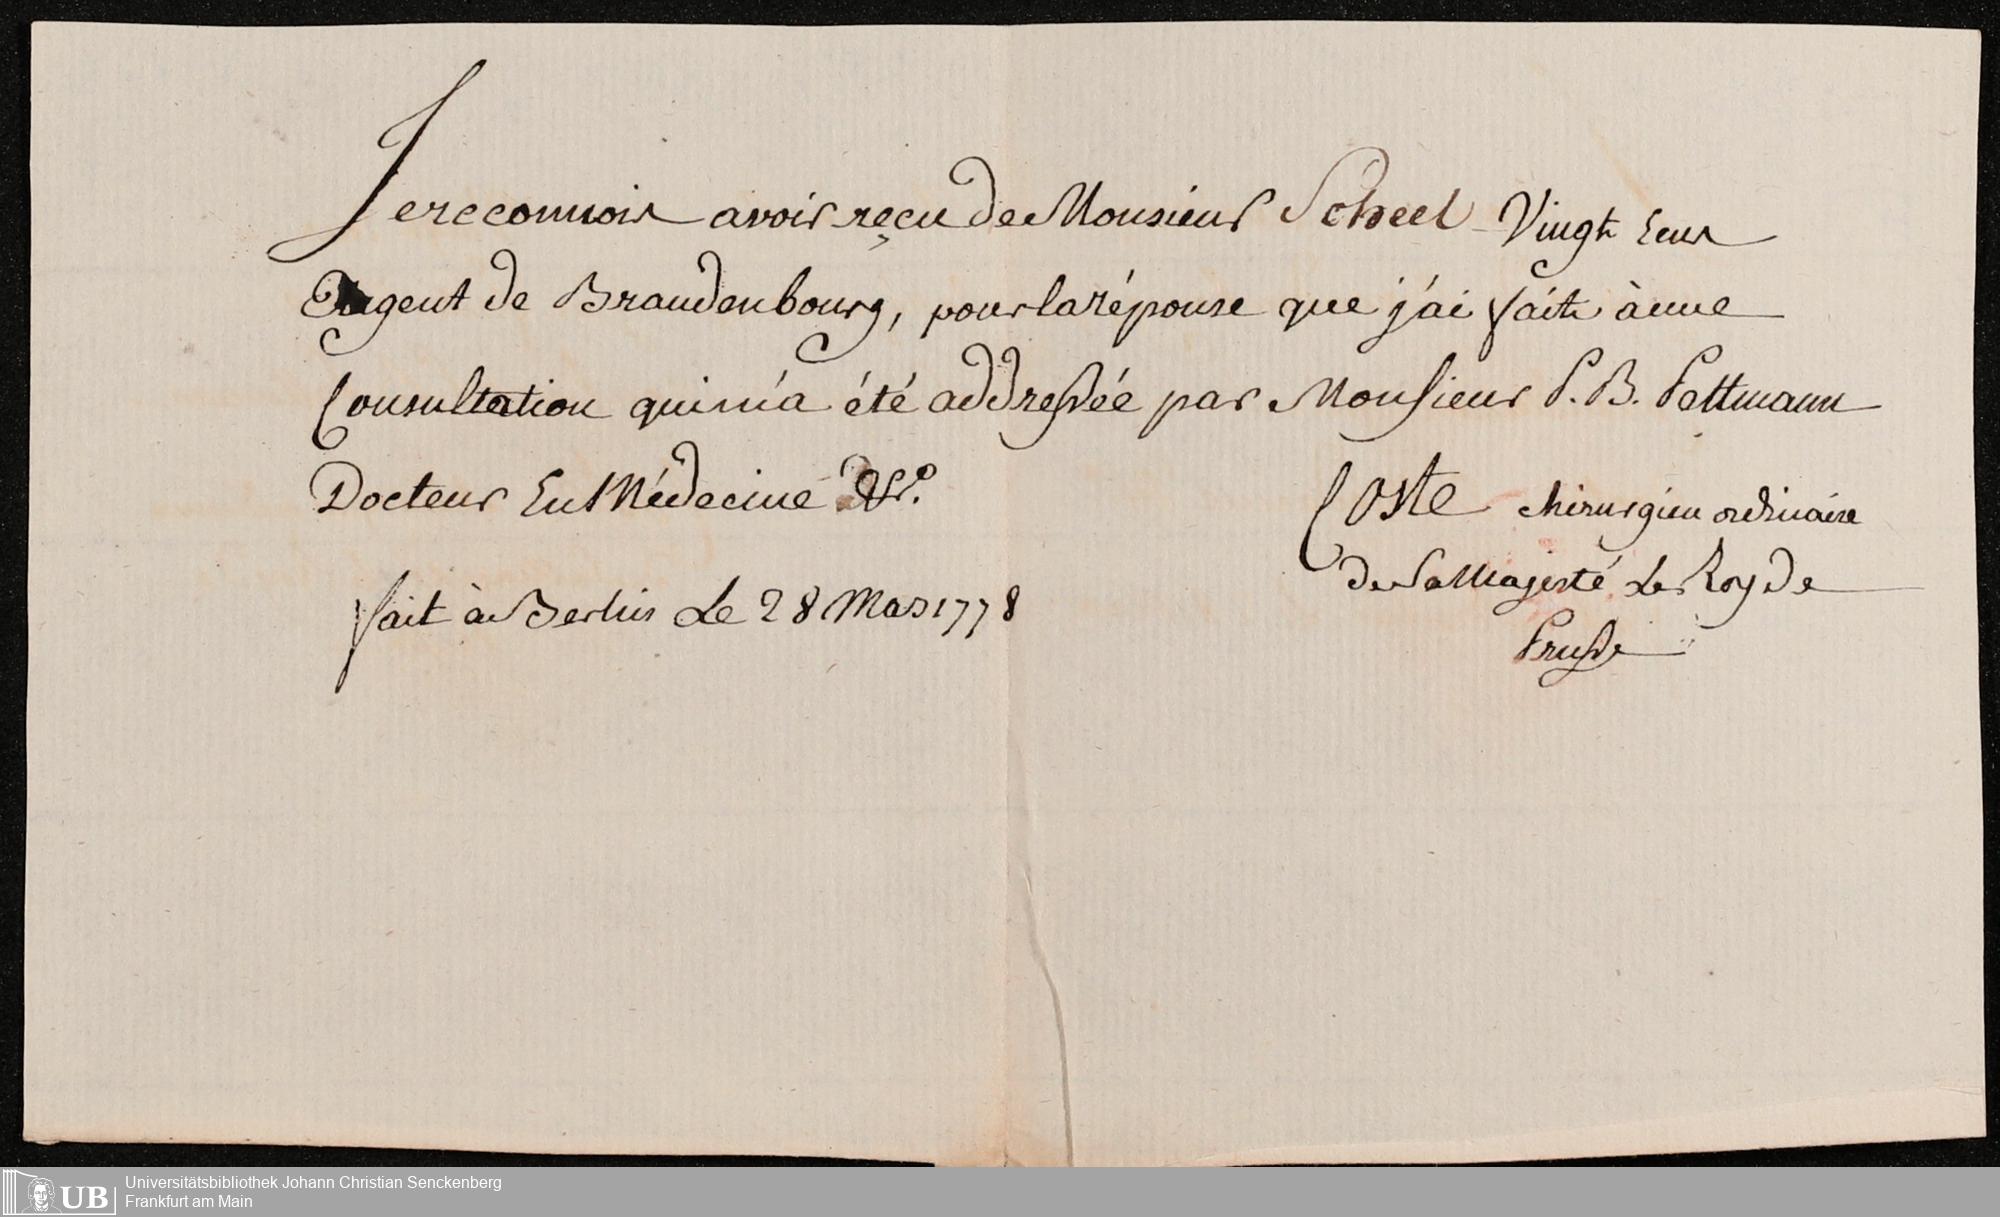 Je reconnois avoir reçu de Monsieur Scheel Vingt Ecus
Argent de Brandenbourg, pour la réponse que j'ai fait à une
Consultation qui m'a été addressée par Monsieur P. B. Pettmann
Docteur En Médecine &c.
Coste chirurgien ordinaire
de Sa Majesté Le Roy de
Prusse
fait à Berlin Le 28 Mars 1778
Universitätsbibliothek Johann Christian Senckenberg
Frankfurt am Main
UB